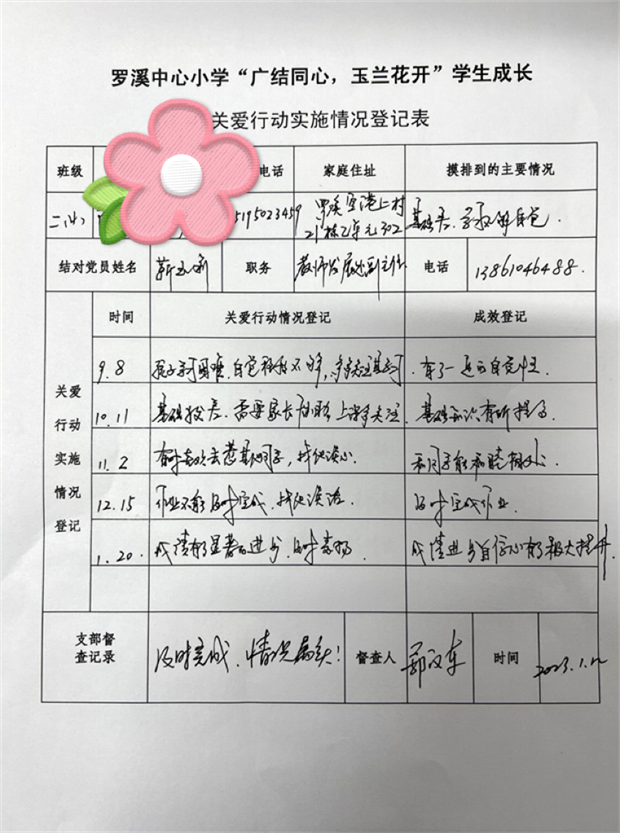 罗溪中心小学“广结同心，玉兰花开”学生成长
关爱行动实施情况登记表
班级 电话 家庭住址 摸排到的主要情况
5195023459 罗溪空港上村 基础差、学习自觉
21栋乙单元302
结对党员姓名 职务 教师发展处副主任 电话 13861046488.
时间 关爱行动情况登记 成效登记
关爱行动实施情况登记
9.8 孩子学习困难，自觉性不够，多关注 有了一定的自觉性.
10.11 基础较差、需要家长 上课多关注. 基础知识有所提高
11.2 有时喜欢去惹其他同学，找他谈心. 和同学能和睦相处.
12.15 作业不能按时完成、找他谈话. 按时完成作业.
1.20. 成绩有了显著的进步、及时表扬. 成绩进步自信心有了很大提升
支部督查记录 及时完成、情况属实! 督查人 时间 2023.1.